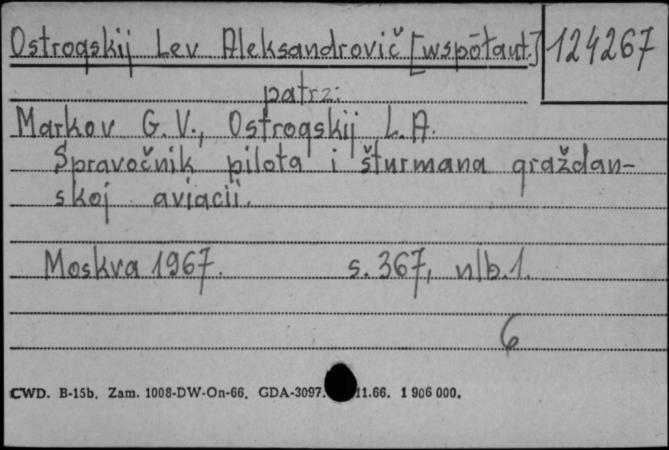 Ostrogskij Lev Aleksandrovič [współaut.] 124267
patrz:
Markov G.V., Ostrogskij L.A.
Spravočnik pilota i šturmana graždan-
skoj aviacii.
Moskva 1967. s. 367, nlb.1.
6
CWD. B-15b. Zam. 1008-DW-On-66. GDA-3097. 11.66. 1 906 000.